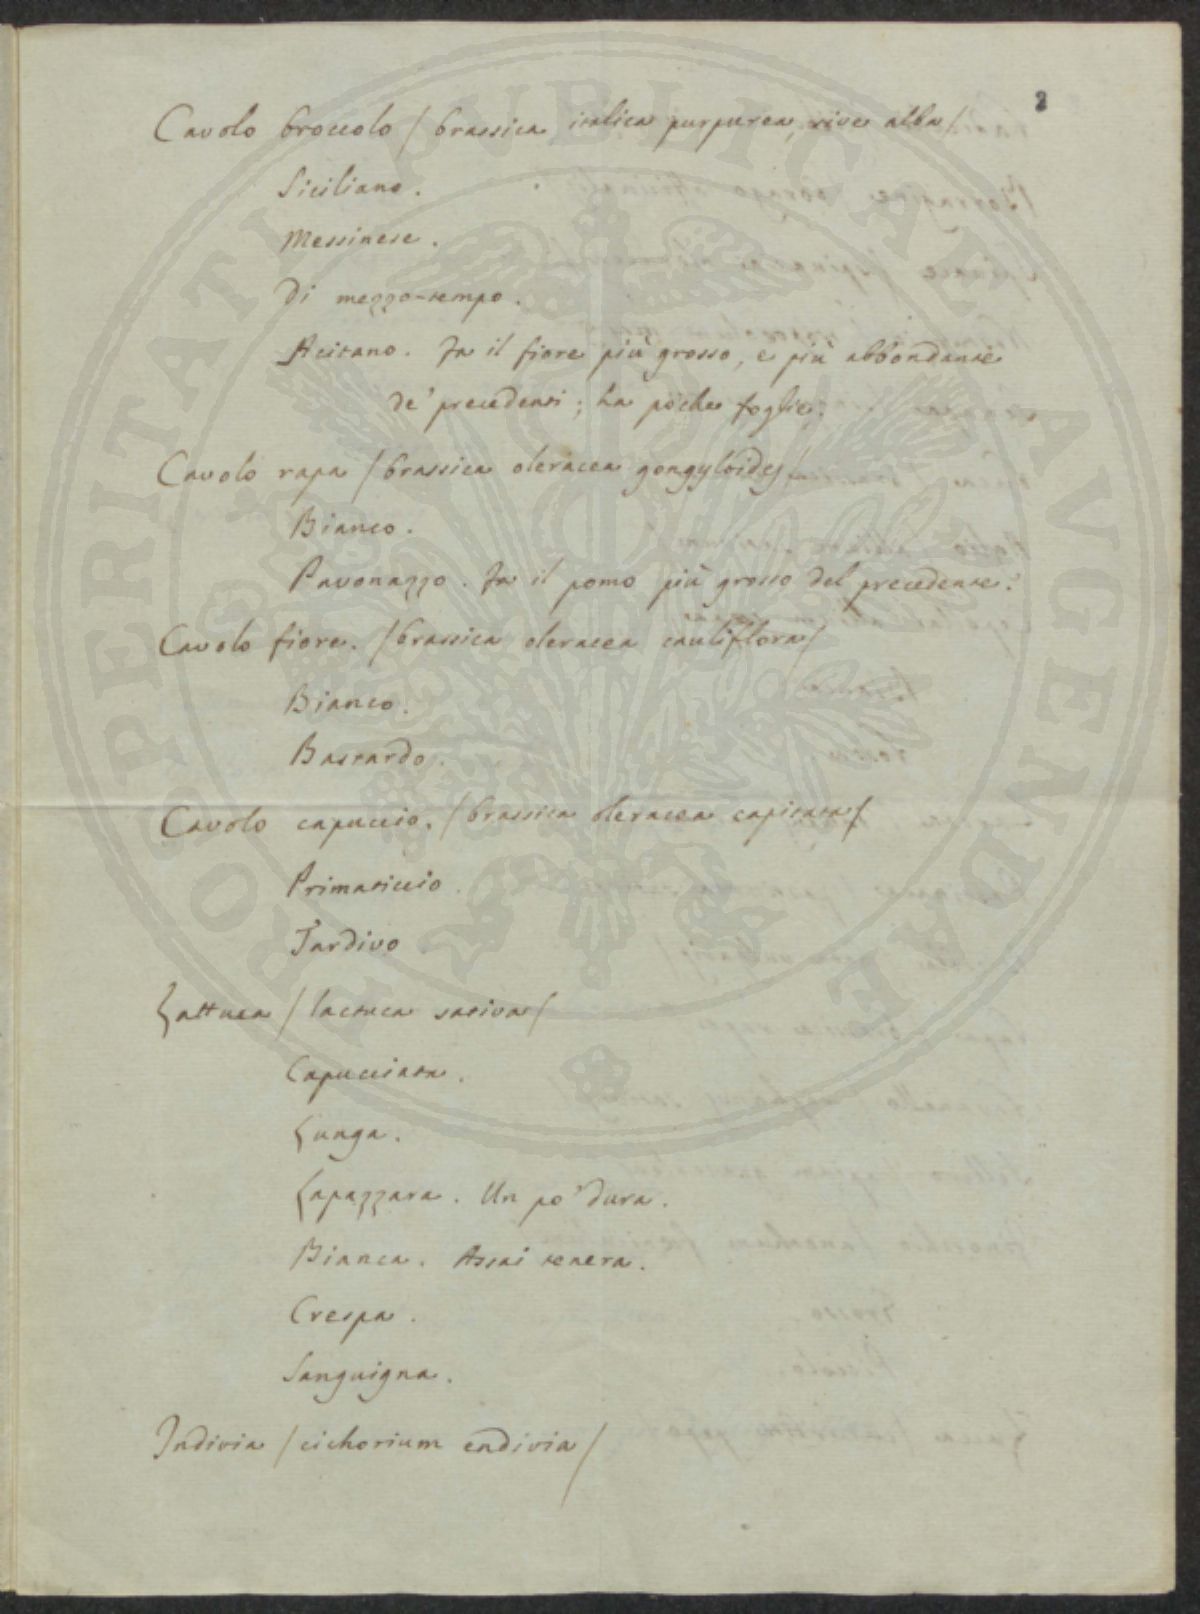 2
Cavolo broccolo / brassica italica purpurea, sive alba /
Siciliano.
Messinese.
Di mezzo-tempo.
Acitano. Fa il fiore più grosso, e più abbondante
de' precedenti; ha poche foglie.
Cavolo rapa / brassica oleracea gongyloides /
Bianco.
Pavonazzo. Fa il pomo più grosso del precedente.
Cavolo fiore. / brassica oleracea cauliflora /
Bianco.
Bastardo.
Cavolo capuccio. / brassica oleracea capitata /
Primaticcio.
Tardivo.
Lattuca / lactuca sativa /
Capucciata.
Lunga.
Lapazzara. Un po' dura.
Bianca. Assai tenera.
Crespa.
Sanguigna.
Indivia / cichorium endivia /
PROSPERITATI PUBLICAE AUGENDAE